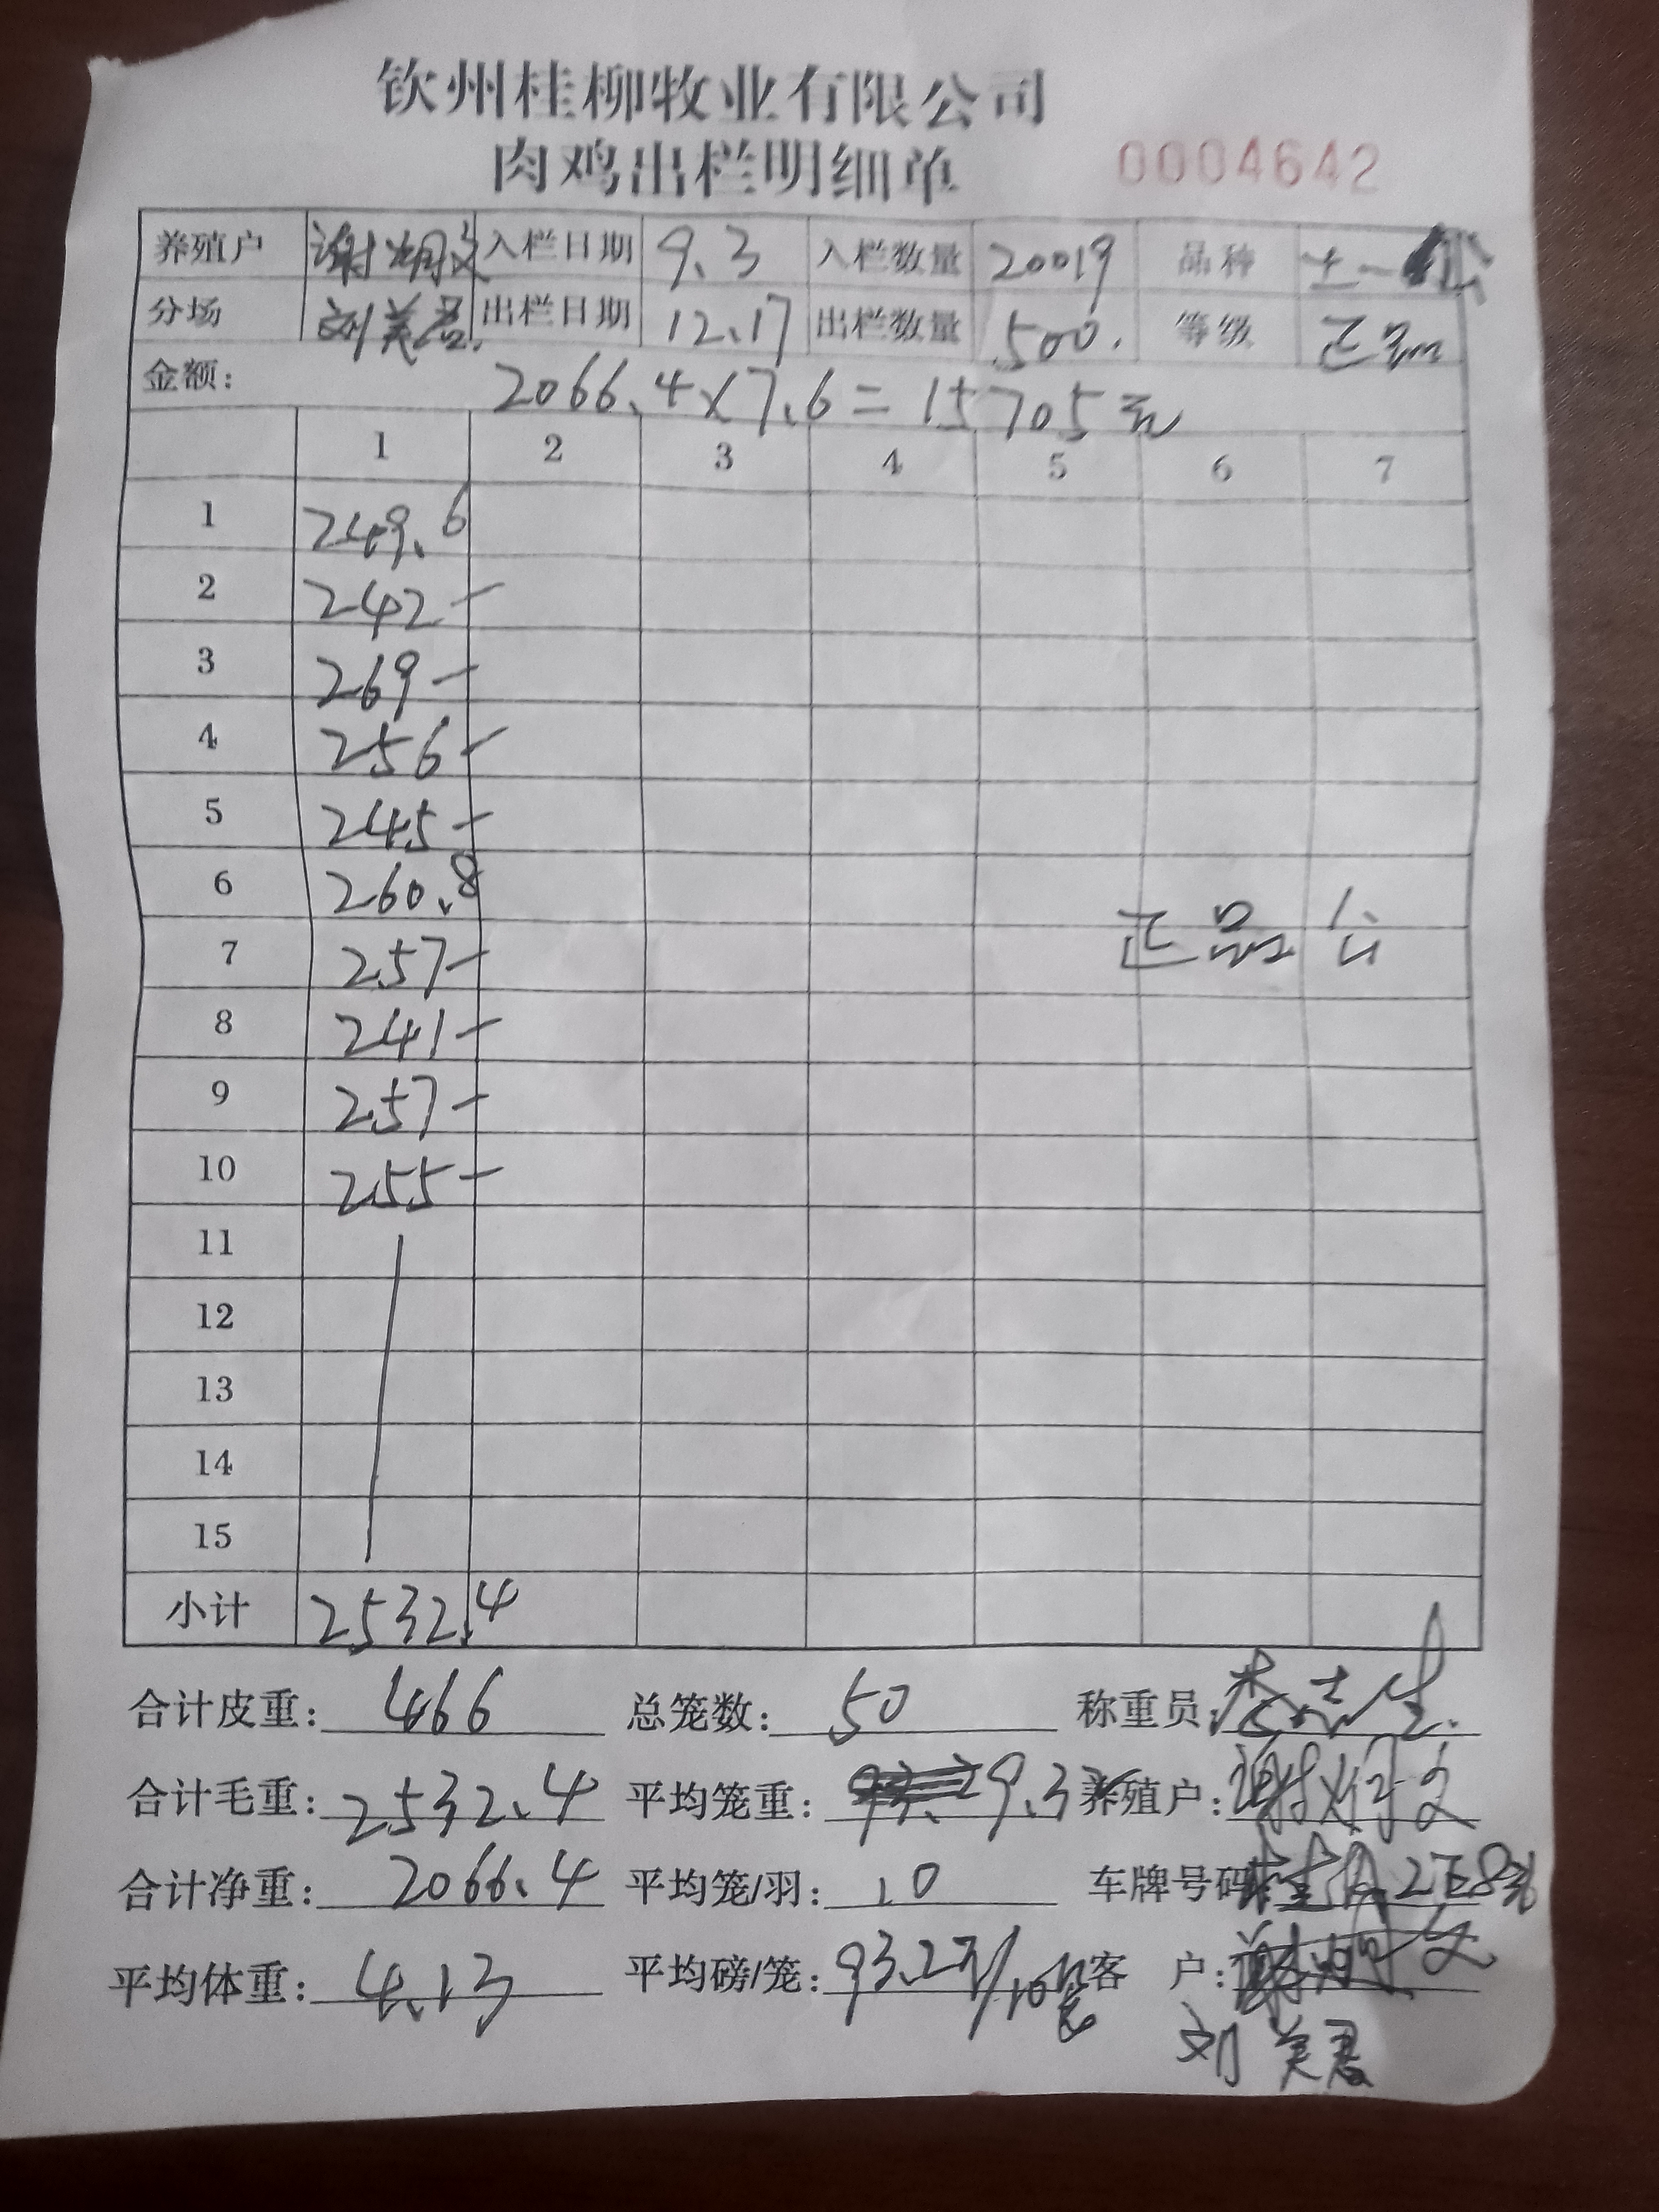 钦州桂柳牧业有限公司
肉鸡出栏明细单 0004642
养殖户 谢 文 入栏日期 9.3 入栏数量 20019 品种 土一 公
分场 刘美君. 出栏日期 12.17 出栏数量 500. 等级 正品
金额: 2066.4×7.6=15705元
1 2 3 4 5 6 7
1 249.6
2 242-
3 269-
4 256-
5 245-
6 260.8
7 257- 正品公
8 241-
9 257-
10 255-
11
12
13
14
15
小计 2532.4
合计皮重: 466 总笼数: 50 称重员: 李志生.
合计毛重: 2532.4 平均笼重: 9.3 养殖户: 谢 文
合计净重: 2066.4 平均笼/羽: 10 车牌号码:
平均体重: 4.13 平均磅/笼: 93.2斤/10笼 客 户:
刘美君